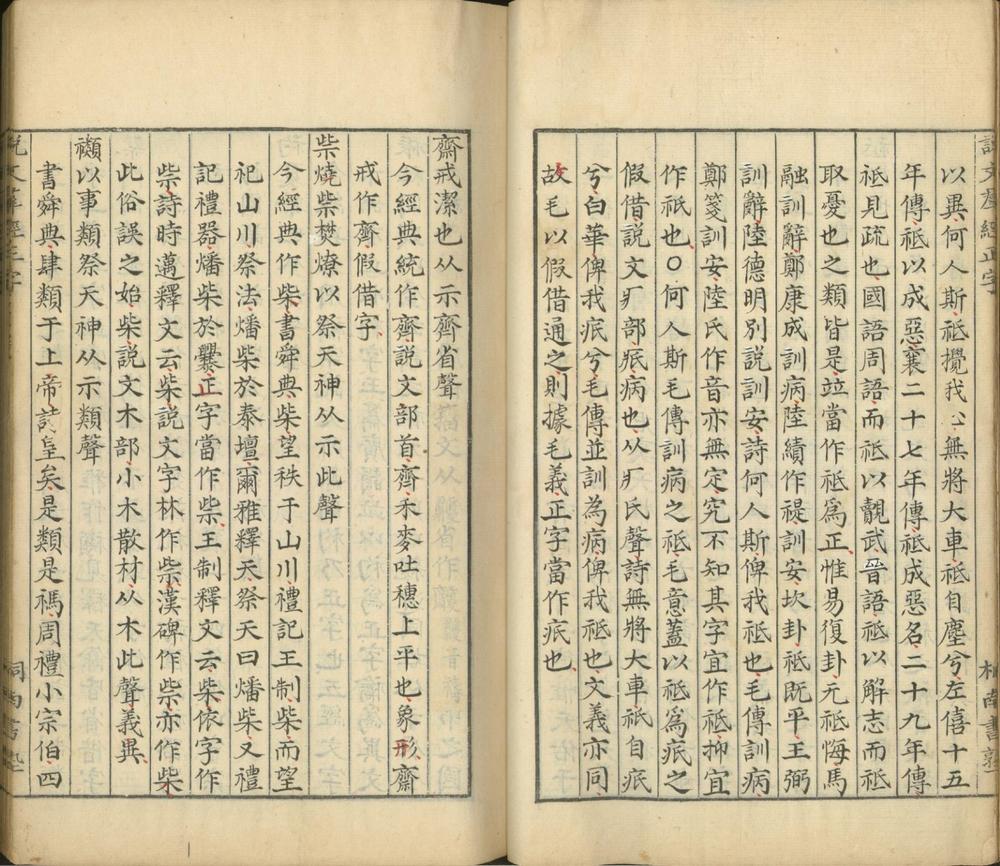 說文群經正字
桐南書塾
以異何人斯祗攪我心無將大車祗自塵兮左僖十五
年傳祗以成惡襄二十七年傳祗成惡名二十九年傳
祗見疏也國語周語而祗以覿武晉語祗以解志而祗
取憂也之類皆是竝當作祗爲正惟易復卦元祗悔馬
融訓辭鄭康成訓病陸績作禔訓安坎卦祗既平王弼
訓辭陸德明別說訓安詩何人斯俾我祗也毛傳訓病
鄭箋訓安陸氏作音亦無定究不知其字宜作祗抑宜
作祇也〇何人斯毛傳訓病之祗毛意蓋以祗爲疧之
假借說文疒部疧病也从疒氏聲詩無將大車祇自疧
兮白華俾我疧兮毛傳並訓為病俾我祗也文義亦同
故毛以假借通之則據毛義正字當作疧也
齋戒潔也从示齊省聲
今經典統作齊說文部首齊禾麥吐穗上平也象形齋
戒作齊假借字
祡燒柴焚燎以祭天神从示此聲
今經典作柴書舜典柴望秩于山川禮記王制柴而望
祀山川祭法燔柴於泰壇爾雅釋天祭天曰燔柴又禮
記禮器燔柴於爨正字當作祡王制釋文云柴依字作
祡詩時邁釋文云柴說文字林作祡漢碑作柴亦作祡
此俗誤之始柴說文木部小木散材从木此聲義異
禷以事類祭天神从示類聲
書舜典肆類于上帝詩皇矣是類是禡周禮小宗伯四
說文群經正字
桐南書塾